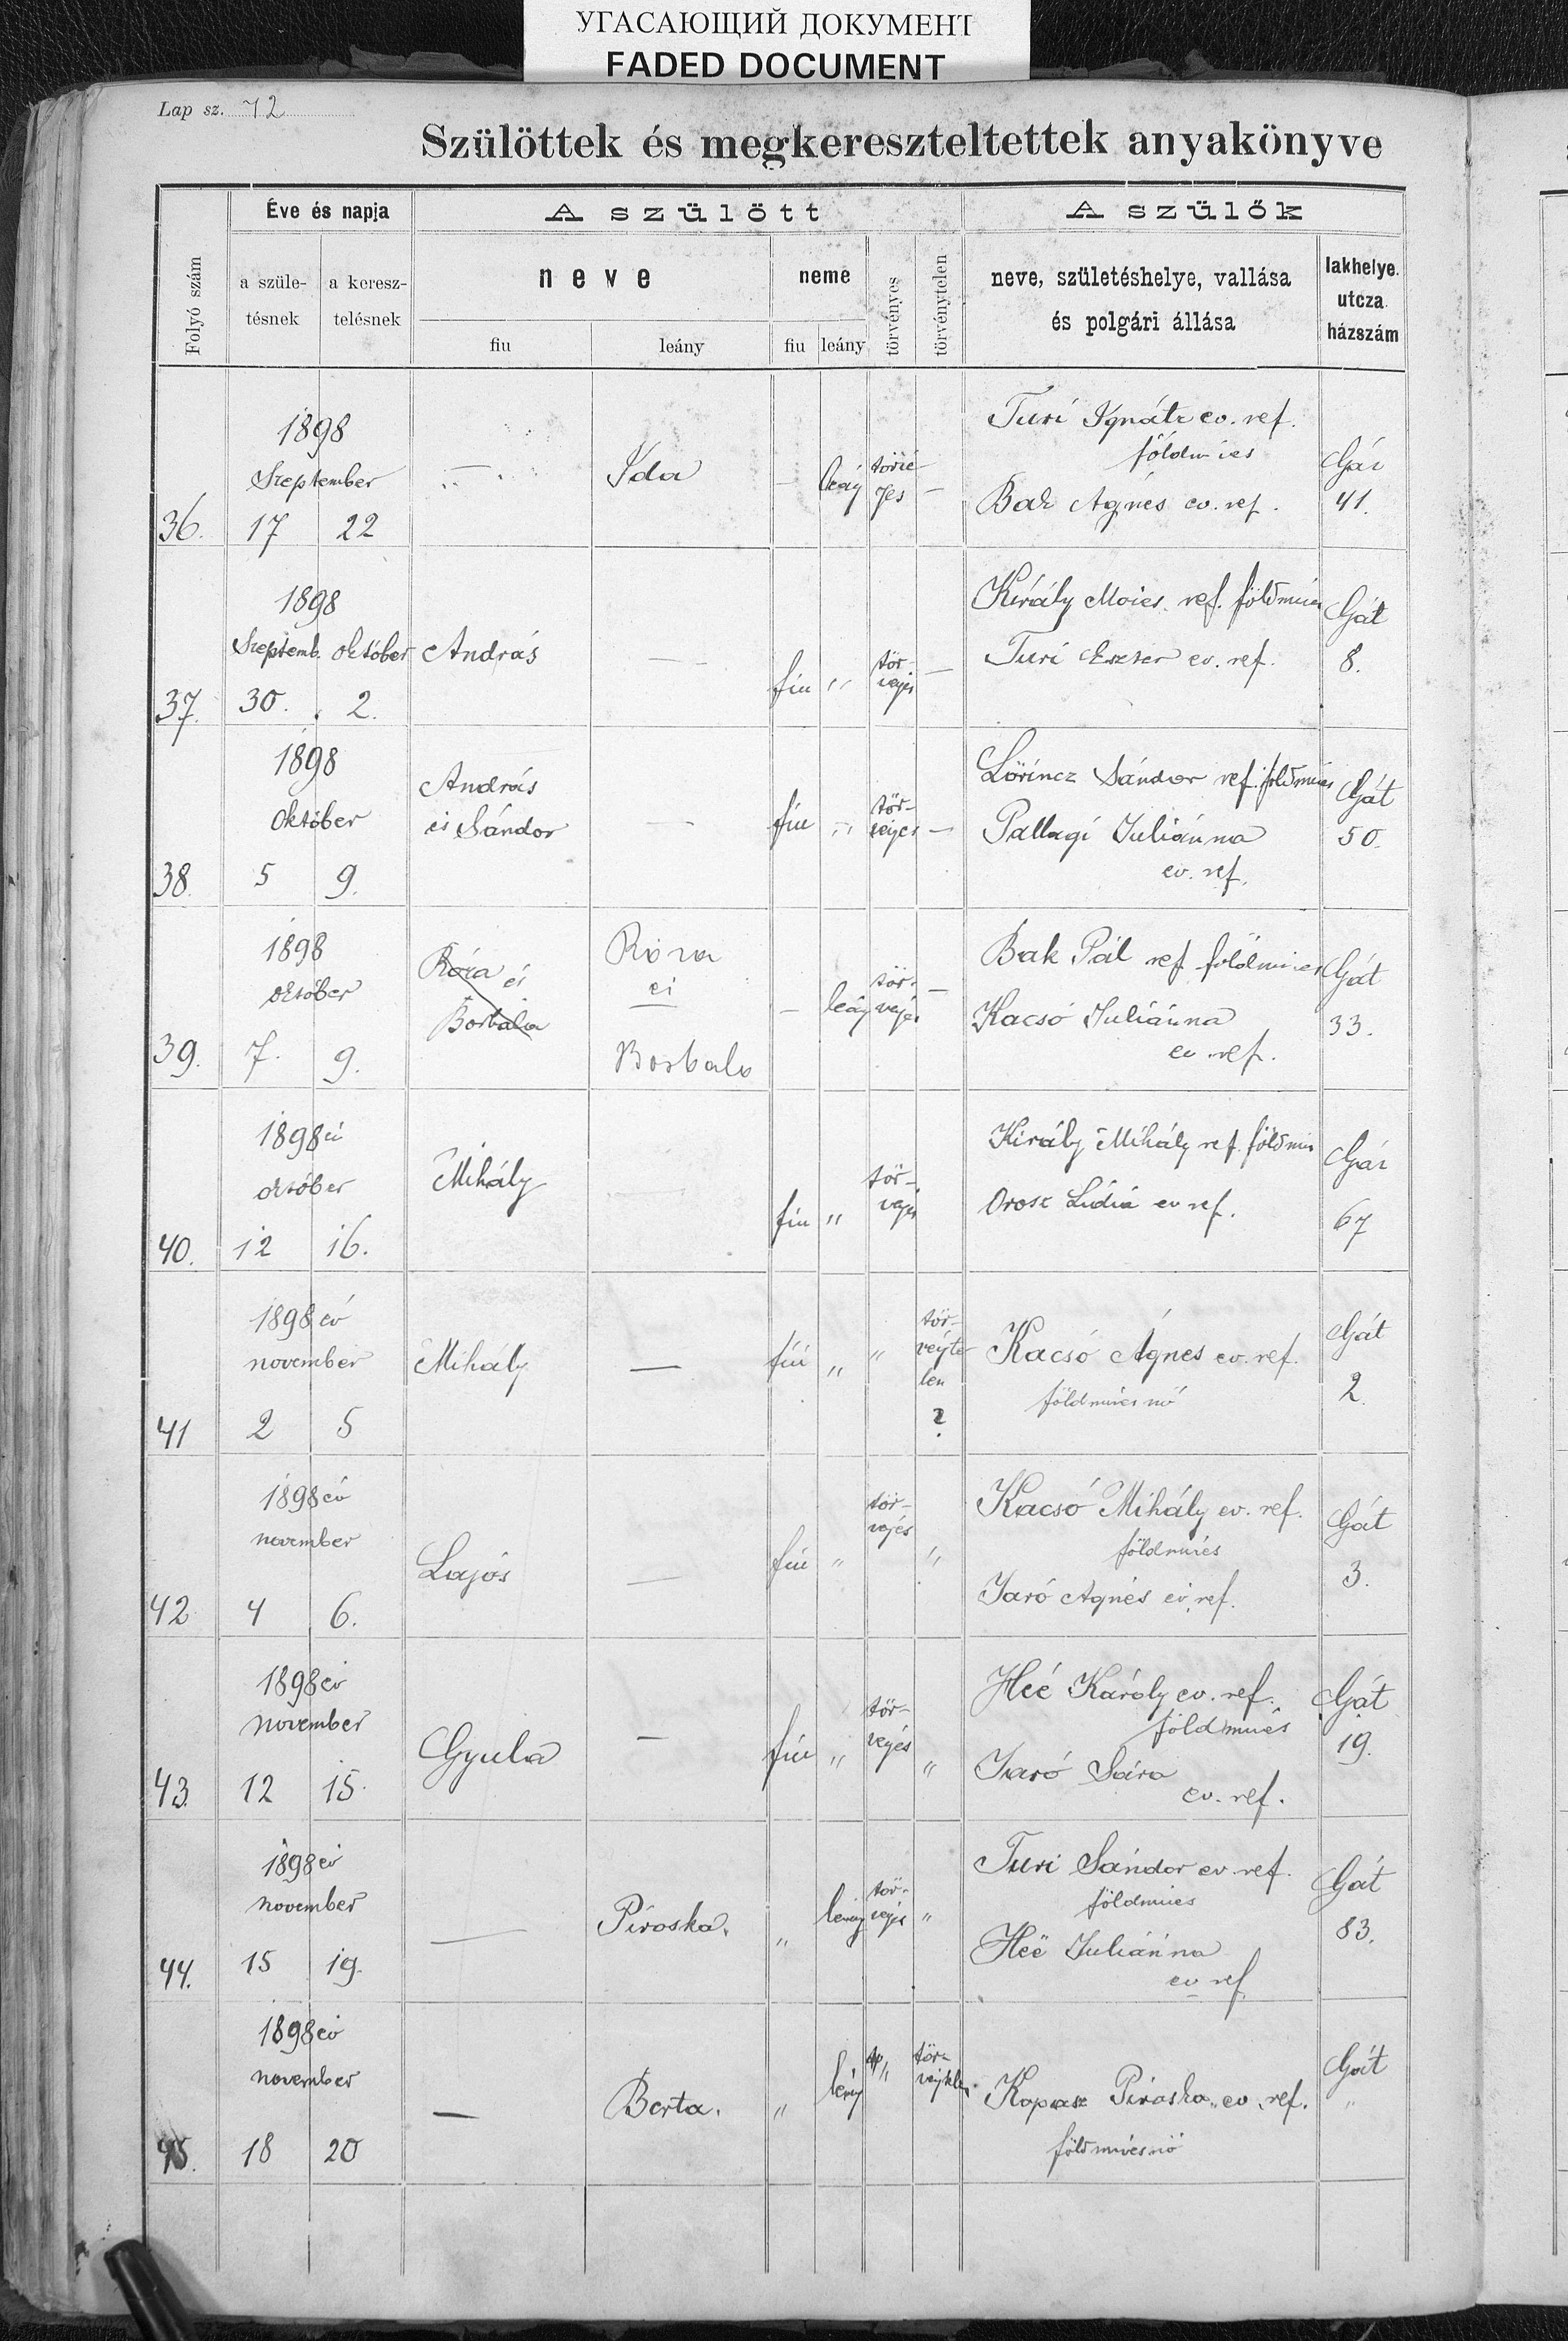 УГАСАЮЩИЙ ДОКУМЕНТ
FADED DOCUMENT
Lap sz. 72
Szülöttek és megkereszteltettek anyakönyve
Folyó szám
Éve és napja
a szüle-
tésnek
a keresz-
telésnek
A szülött
neve
fiu
leány
neme
fiu
leány
törvényes
törvénytelen
A szülők
neve, születéshelye, vallása
és polgári állása
lakhelye.
utcza
házszám
36.
1898
Szeptember
17 22
Ida
Turi Ignátz ev. ref.
Bak Ágnes ev. ref.
41.
37.
1898
Szeptemb. október
30. 2.
András
fiu "
Király Moies ref. földmies
Turi Eszter ev. ref.
Gát
8.
38.
1898
október
5 9.
András
és Sándor
fiu
Lőrincz Sándor ref. földmies
Pallagi Juliánna
ev. ref.
Gát
50.
39.
1898
október
7. 9.
Róza és
Borbála
Róza
és
Borbala
Bak Pál ref földmies
Kacsó Juliánna
ev. ref.
Gát
33.
40.
1898 év
október
12 16.
Mihály
fiu "
Király Mihály ref. földmies
Orosz Lidia ev ref.
67
41
1898 év
november
2 5
Mihály
—
fiu " "
?
Kacsó Ágnes ev. ref.
földmies nő
Gát
2.
42
1898 év
november
4 6.
Lajos
—
fiu " "
Kacsó Mihály ev. ref.
földmies
Jaró Ágnes ev. ref.
Gát
3.
43.
1898 év
november
12 15.
Gyula
—
fiu " "
Heé Károly ev. ref.
földmies
Jaró Sára
ev. ref.
Gát
19.
44.
1898 év
november
15 19.
—
Piroska.
" "
Turi Sándor ev. ref.
földmies
Heé Juliánna
ev ref
Gát
83.
45.
1898 év
november
18 20
—
Berta.
"
Kopasz Piroska ev. ref.
földmiesnő
Gát
"